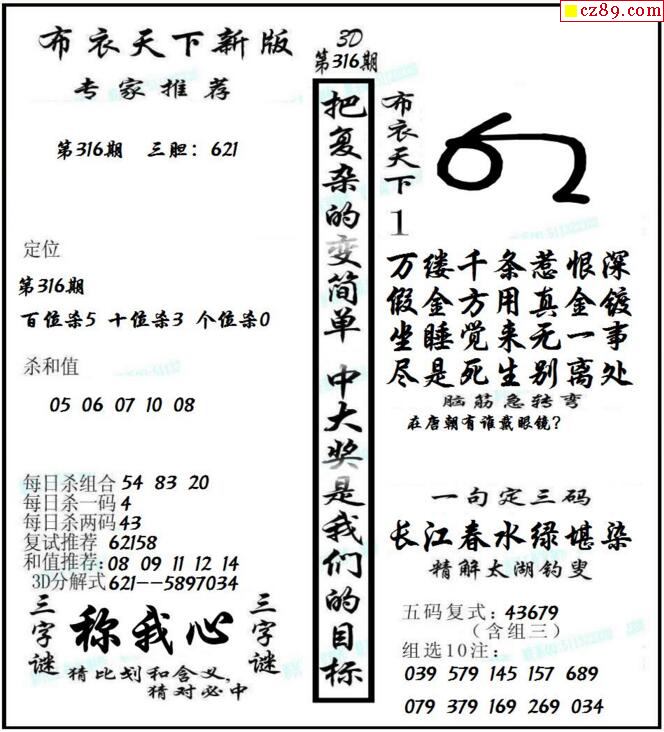 cz89.com
布衣天下新版
专家推荐
第316期 三胆：621
定位
第316期
百位杀5 十位杀3 个位杀0
杀和值
05 06 07 10 08
每日杀组合 54 83 20
每日杀一码 4
每日杀两码 43
复试推荐 62158
和值推荐：08 09 11 12 14
3D分解式 621--5897034
三字谜
称我心
三字谜
猜比划和含义，
猜对必中
3D
第316期
把复杂的变简单 中大奖是我们的目标
布衣天下
1
万缕千条惹恨深
假金方用真金镀
坐睡觉来无一事
尽是死生别离处
脑筋急转弯
在唐朝有谁戴眼镜？
一句定三码
长江春水绿堪染
精解太湖钓叟
五码复式：43679
（含组三）
组选10注：
039 579 145 157 689
079 379 169 269 034